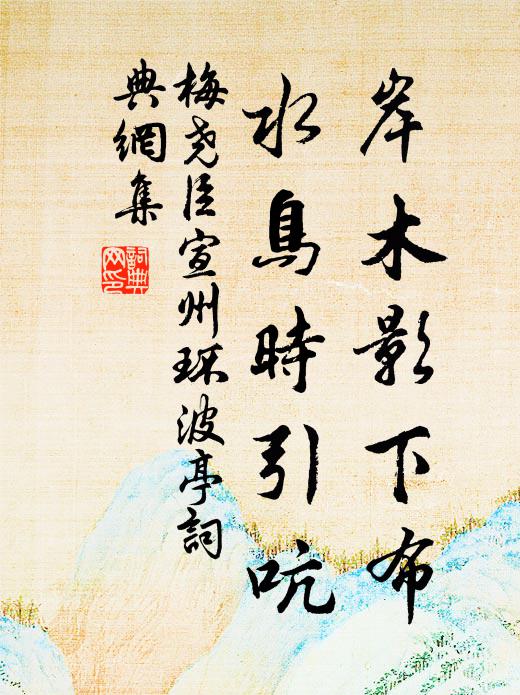 岸木影下布
水鳥時引吭
梅堯臣宣州環波亭詞
典網集
詞典
网印